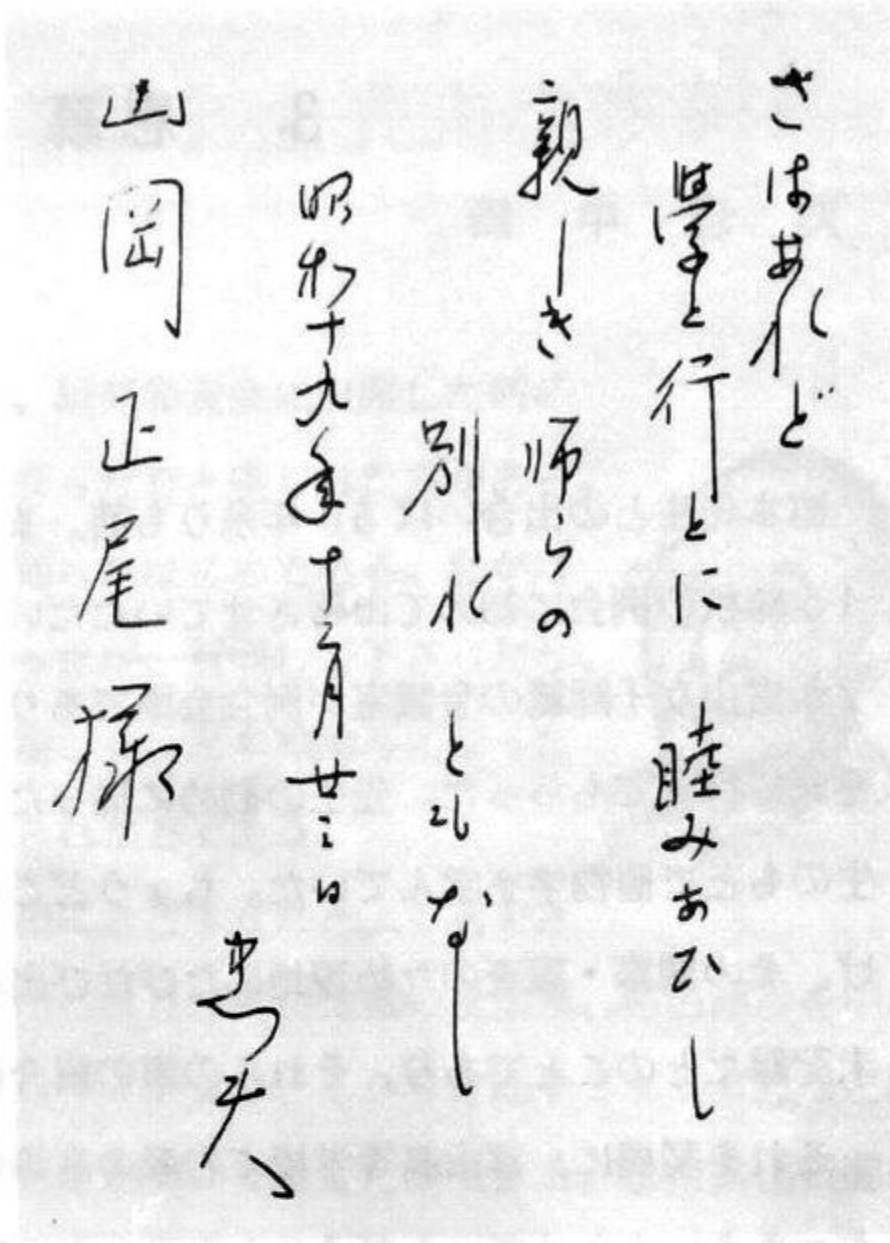 さはあれど
學と行とに 睦みあひし
親しき 師らの
別れ ともなし
昭和十九年十二月廿三日
忠夫
山岡正尾様